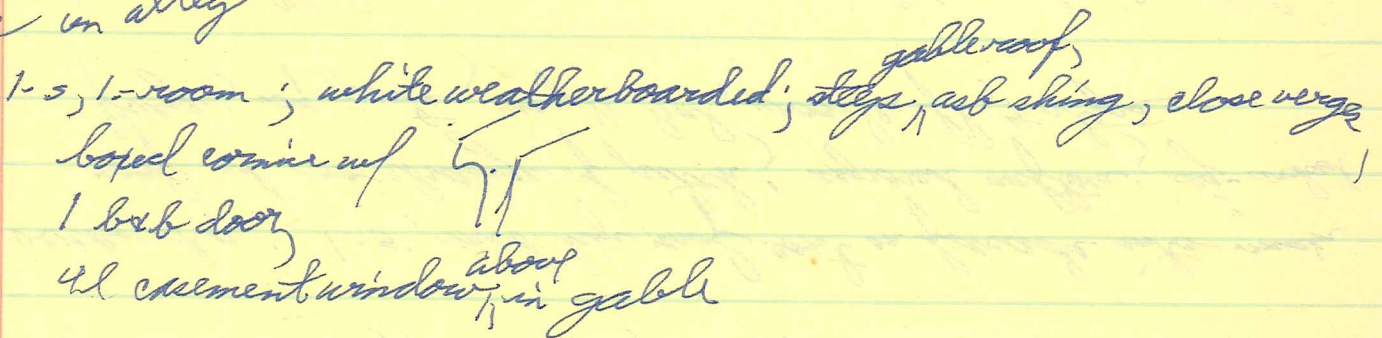 on alley
1-s, 1-room ; white weatherboarded ; steep gable roof, asb shing, close verge,
boxed cornice w/
1 b&b door,
4l casement window, above in gable